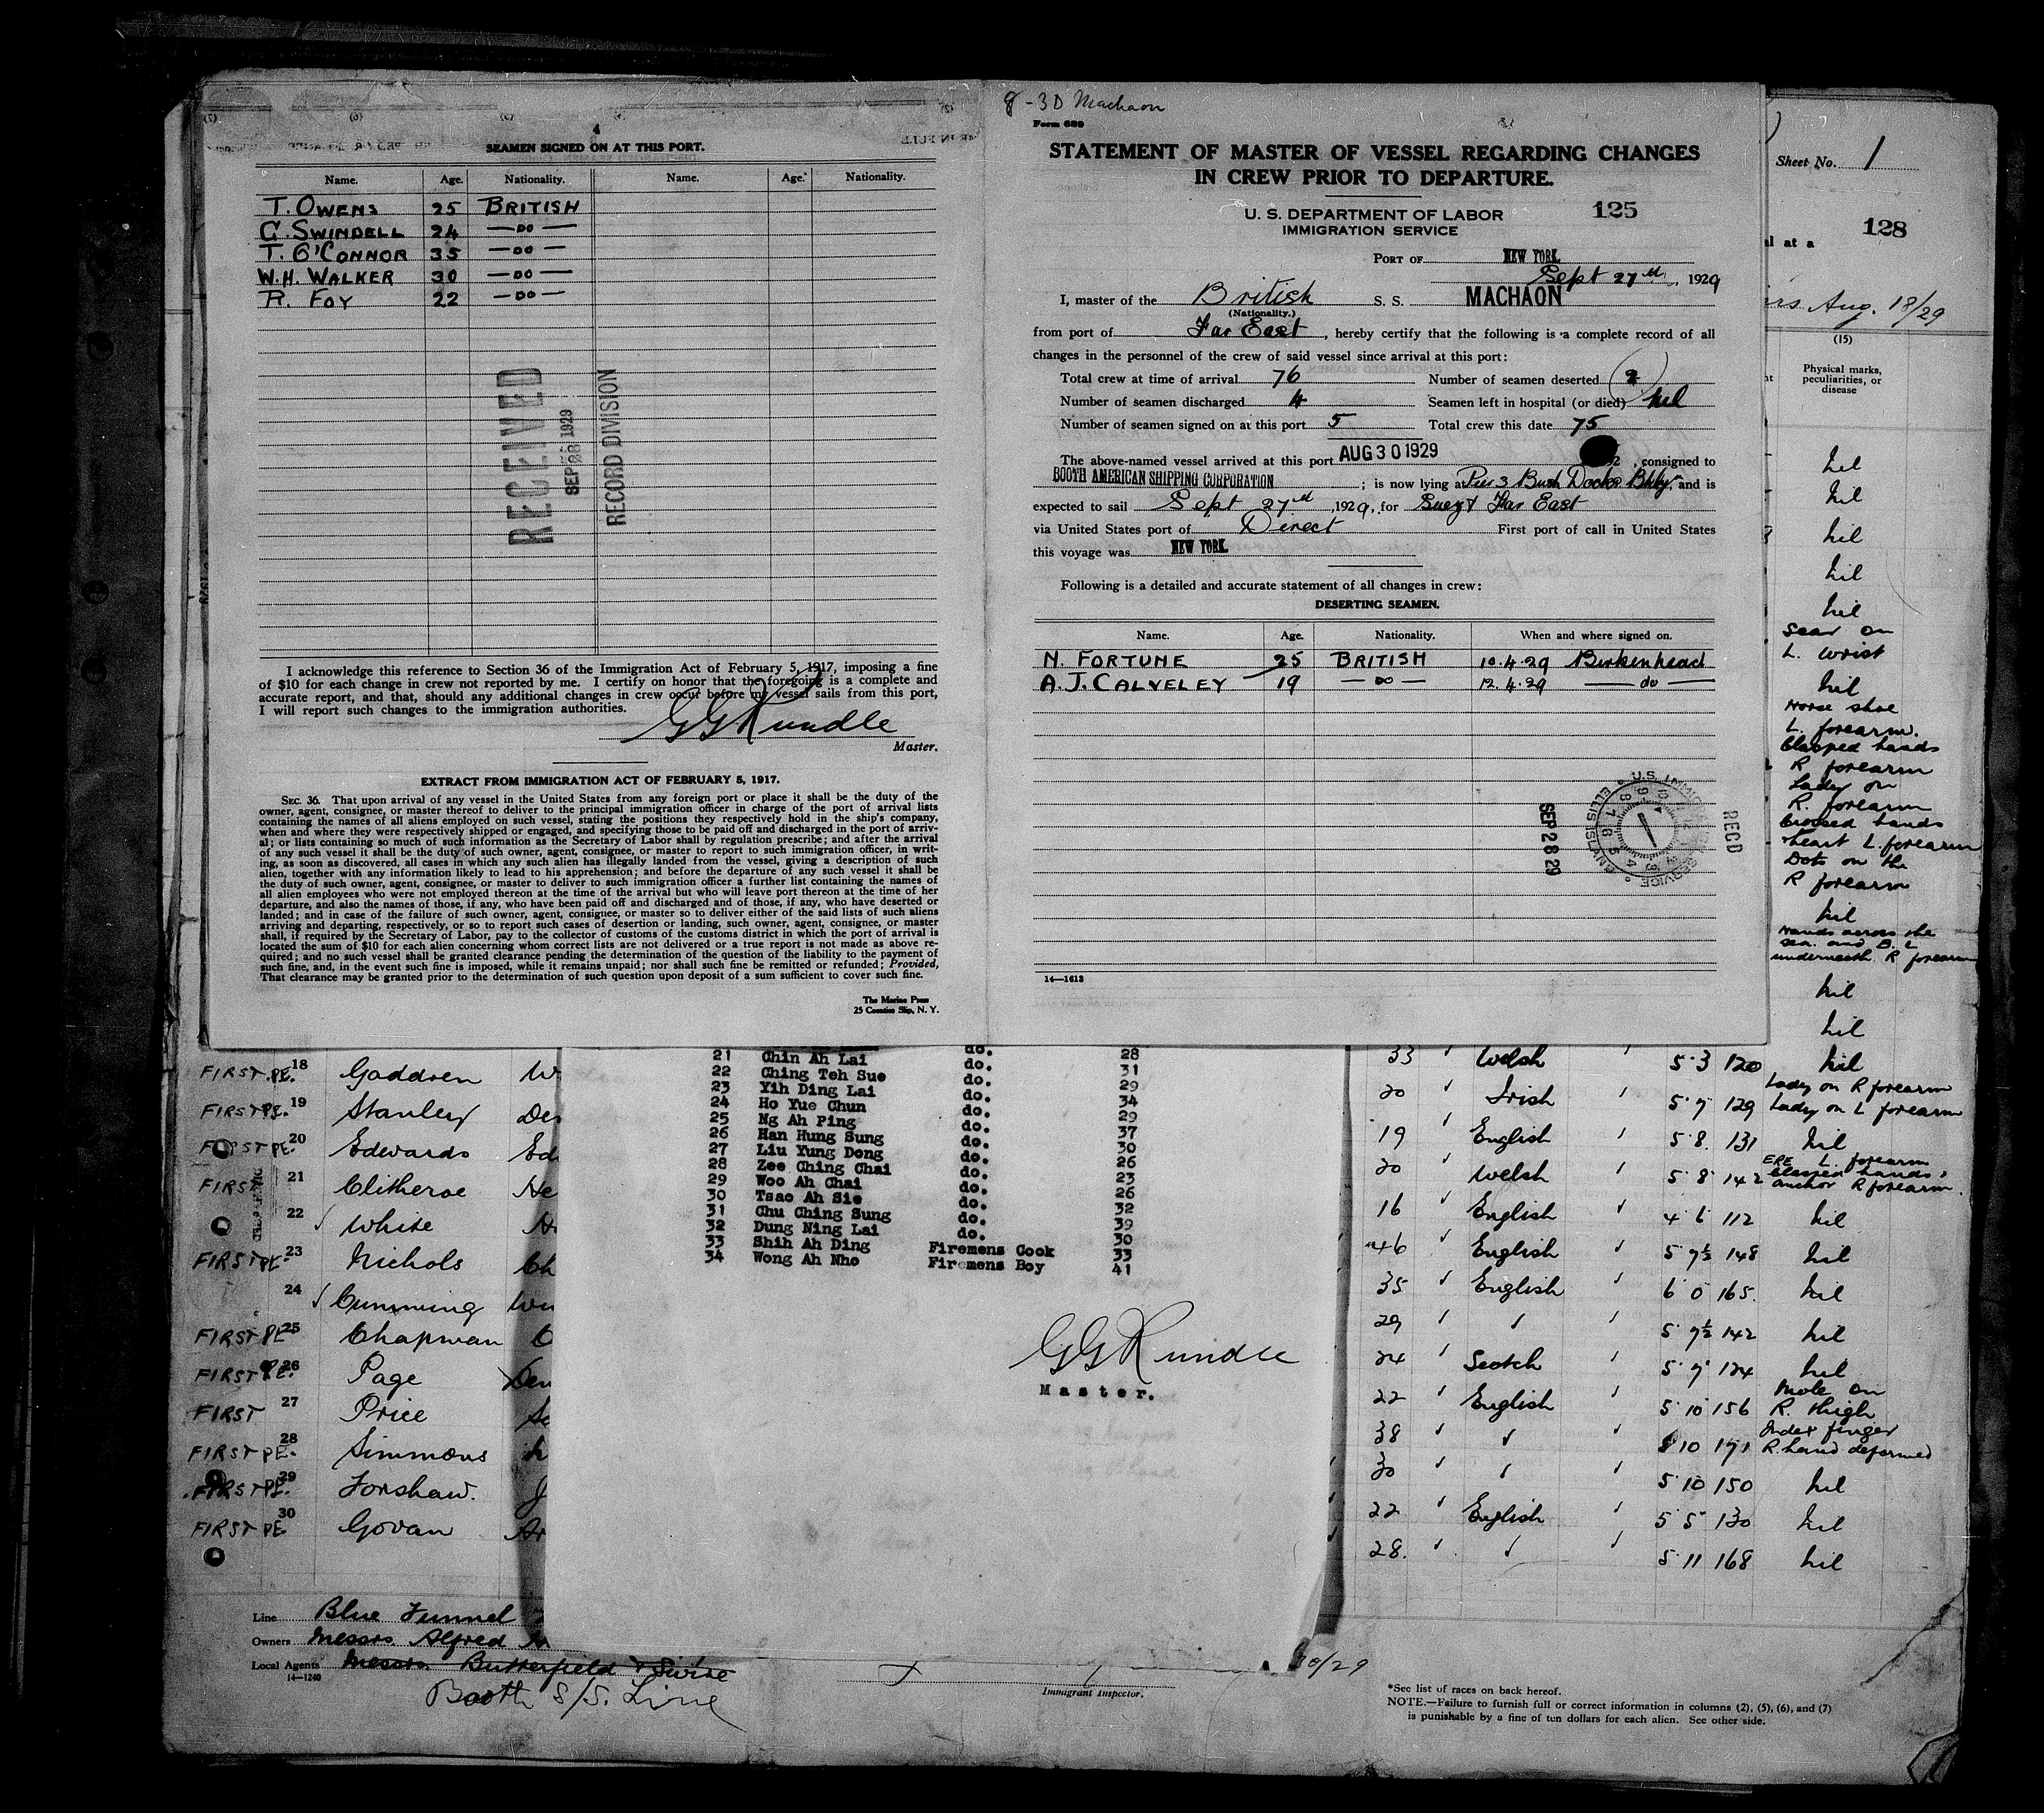 4
SEAMEN SIGNED ON AT THIS PORT.
Name. Age. Nationality. Name. Age. Nationality.
T. OWENS 25 BRITISH
G. SWINDELL 24 — DO —
T. O'CONNOR 35 — DO —
W. H. WALKER 30 — DO —
R. FOY 22 — DO —
RECEIVED
SEP 28 1929
RECORD DIVISION
I acknowledge this reference to Section 36 of the Immigration Act of February 5, 1917, imposing a fine
of $10 for each change in crew not reported by me. I certify on honor that the foregoing is a complete and
accurate report, and that, should any additional changes in crew occur before my vessel sails from this port,
I will report such changes to the immigration authorities.
G G Rundle
Master.
EXTRACT FROM IMMIGRATION ACT OF FEBRUARY 5, 1917.
SEC. 36. That upon arrival of any vessel in the United States from any foreign port or place it shall be the duty of the
owner, agent, consignee, or master thereof to deliver to the principal immigration officer in charge of the port of arrival lists
containing the names of all aliens employed on such vessel, stating the positions they respectively hold in the ship's company,
when and where they were respectively shipped or engaged, and specifying those to be paid off and discharged in the port of arriv-
al; or lists containing so much of such information as the Secretary of Labor shall by regulation prescribe; and after the arrival
of any such vessel it shall be the duty of such owner, agent, consignee, or master to report to such immigration officer, in writ-
ing, as soon as discovered, all cases in which any such alien has illegally landed from the vessel, giving a description of such
alien, together with any information likely to lead to his apprehension; and before the departure of any such vessel it shall be
the duty of such owner, agent, consignee, or master to deliver to such immigration officer a further list containing the names of
all alien employees who were not employed thereon at the time of the arrival but who will leave port thereon at the time of her
departure, and also the names of those, if any, who have been paid off and discharged and of those, if any, who have deserted or
landed; and in case of the failure of such owner, agent, consignee, or master so to deliver either of the said lists of such aliens
arriving and departing, respectively, or so to report such cases of desertion or landing, such owner, agent, consignee, or master
shall, if required by the Secretary of Labor, pay to the collector of customs of the customs district in which the port of arrival is
located the sum of $10 for each alien concerning whom correct lists are not delivered or a true report is not made as above re-
quired; and no such vessel shall be granted clearance pending the determination of the question of the liability to the payment of
such fine, and, in the event such fine is imposed, while it remains unpaid; nor shall such fine be remitted or refunded; Provided,
That clearance may be granted prior to the determination of such question upon deposit of a sum sufficient to cover such fine.
The Marine Press
25 Coenties Slip, N. Y.
8 - 30 Machaon
Form 689
STATEMENT OF MASTER OF VESSEL REGARDING CHANGES
IN CREW PRIOR TO DEPARTURE.
U. S. DEPARTMENT OF LABOR 125
IMMIGRATION SERVICE
PORT OF NEW YORK
Sept 27th, 1929
I, master of the British S. S. MACHAON
(Nationality.)
from port of Far East, hereby certify that the following is a complete record of all
changes in the personnel of the crew of said vessel since arrival at this port:
Total crew at time of arrival 76 Number of seamen deserted 2
Number of seamen discharged 4 Seamen left in hospital (or died) nil
Number of seamen signed on at this port 5 Total crew this date 75
The above-named vessel arrived at this port AUG 30 1929 2, consigned to
BOOTH AMERICAN SHIPPING CORPORATION; is now lying at Pier 3 Bush Docks Bkly, and is
expected to sail Sept 27th, 1929, for Suez & Far East
via United States port of Direct First port of call in United States
this voyage was NEW YORK
Following is a detailed and accurate statement of all changes in crew:
DESERTING SEAMEN.
Name. Age. Nationality. When and where signed on.
N. FORTUNE 25 BRITISH 10.4.29 Birkenhead
A. J. CALVELEY 19 — DO — 12.4.29 — do —
SEP 28 29
U.S. IMMIGRATION SERVICE ELLIS ISLAND
REC'D
14—1613
Sheet No. 1
l at a 128
Aug. 18/29
(15)
Physical marks,
peculiarities, or
disease
nil
nil
nil
nil
nil
Scar on
L. wrist
nil
Horse shoe
L. forearm.
Clasped hands
R forearm
Lady on
R. forearm
Crossed hands
Heart L. forearm
Dots on the
R forearm
nil
Hands across the
sea. and B. L
underneath R forearm
nil
nil
FIRST PE. 18 Gaddren W 33 Welsh 5 3 120 nil
FIRST PE. 19 Stanley Den 20 Irish 5 7 129 Lady on R forearm Lady on L forearm
FIRST PE. 20 Edwards Ed 19 English 5 8 131 nil
FIRST 21 Clitheroe He 20 Welsh 5 8 142 L. forearm Clasped hands, anchor R forearm.
22 White 16 English 4 6 112 nil
FIRST PE. 23 Nichols Ch 46 English 5 7½ 148 nil
24 Cumming 35 English 6 0 165 nil
FIRST PE 25 Chapman 29 5 7½ 142 nil
FIRST PE. 26 Page 24 Scotch 5 7 124 nil
FIRST 27 Price 22 English 5 10 156 Mole on R. thigh
FIRST PE. 28 Simmons 38 10 171 Index finger R. hand deformed
FIRST PE. 29 Forshaw. 30 5 10 150 nil
FIRST PE. 30 Govan 22 English 5 5 130 nil
28. 5 11 168 nil
21 Chin Ah Lai do. 28
22 Ching Teh Sue do. 31
23 Yih Ding Lai do. 29
24 Ho Yue Chun do. 34
25 Ng Ah Ping do. 29
26 Han Hung Sung do. 37
27 Liu Yung Dong do. 30
28 Zee Ching Chai do. 26
29 Woo Ah Chai do. 23
30 Tsao Ah Sie do. 26
31 Chu Ching Sung do. 32
32 Dung Ning Lai do. 39
33 Shih Ah Ding Firemens Cook 30
34 Wong Ah Nho Firemens Boy 33
41
G G Rundle
Master.
Line Blue Funnel
Owners Messrs. Alfred
Local Agents Messrs. Butterfield & Swire
14—1240
Booth S/S. Line
30/29
Immigrant Inspector.
*See list of races on back hereof.
NOTE.—Failure to furnish full or correct information in columns (2), (5), (6), and (7)
is punishable by a fine of ten dollars for each alien. See other side.